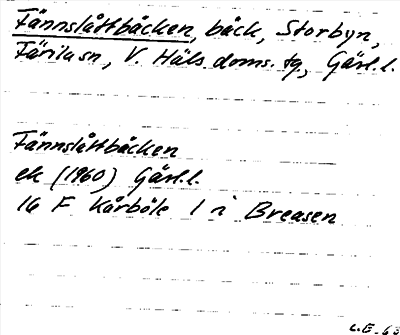 Fännslåttbäcken, bäck, Storbyn,
Färila sn, V. Häls. doms. tg, Gävl. l.
Fännslåttbäcken
ek (1960) Gävl. l.
16 F Kårböle 1 i Breasen
C.E. 63